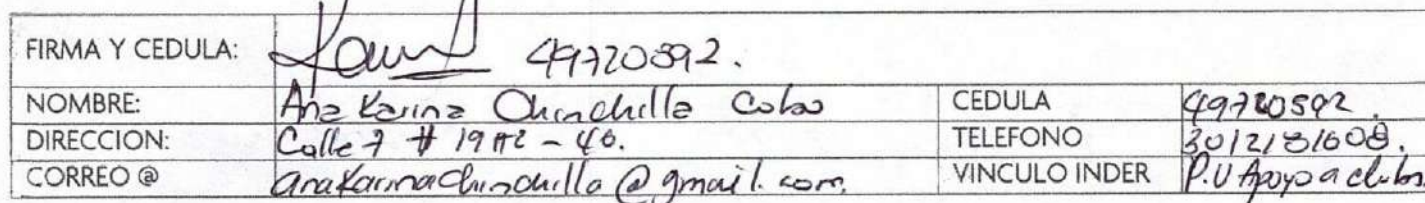 FIRMA Y CEDULA: 49720592.
NOMBRE: Ana Karina Chinchilla Cobo CEDULA 49720592.
DIRECCION: Calle 7 # 19A2 - 40. TELEFONO
CORREO @ anakarinachinchilla@gmail.com VINCULO INDER P.U Apoyo a clubes